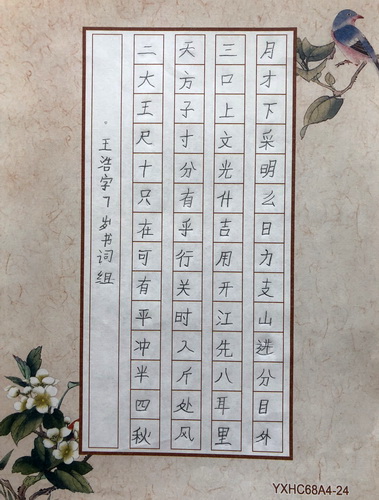 月才下采明么日力支山进分目外
三口上文光廿吉用开江先八耳里
天方子寸分有乎行关时入斤处风
二大王尺十只在可有平冲半四秋
王浩字7岁书词组
YXHC68A4-24